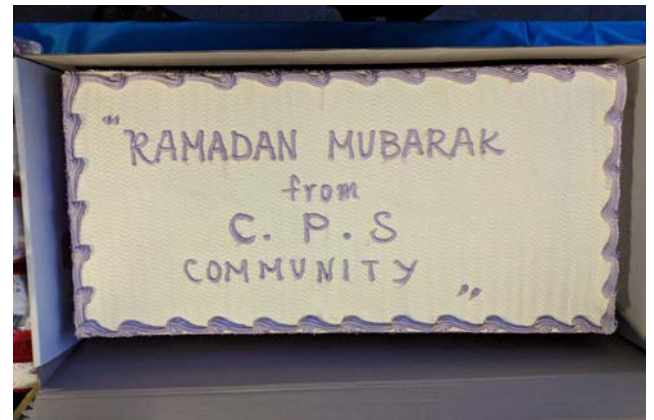 "RAMADAN MUBARAK
from
C. P. S
COMMUNITY "